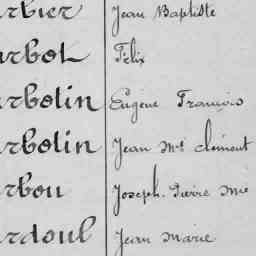 rbier Jean Baptiste
arbot Félix
arbotin Eugène François
arbotin Jean Mie Clément
arbou Joseph Pierre Mie
ardoul Jean Marie